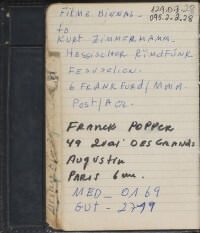 Filme Biennal -
to
Kurt Zimmermann.
Hessischer Rundfunk
6 Frankfurd/Main
Post/
Franck Popper
49 Quai des Grands
Augustin
Paris 6me.
MED_ 0169
GUT - 2799